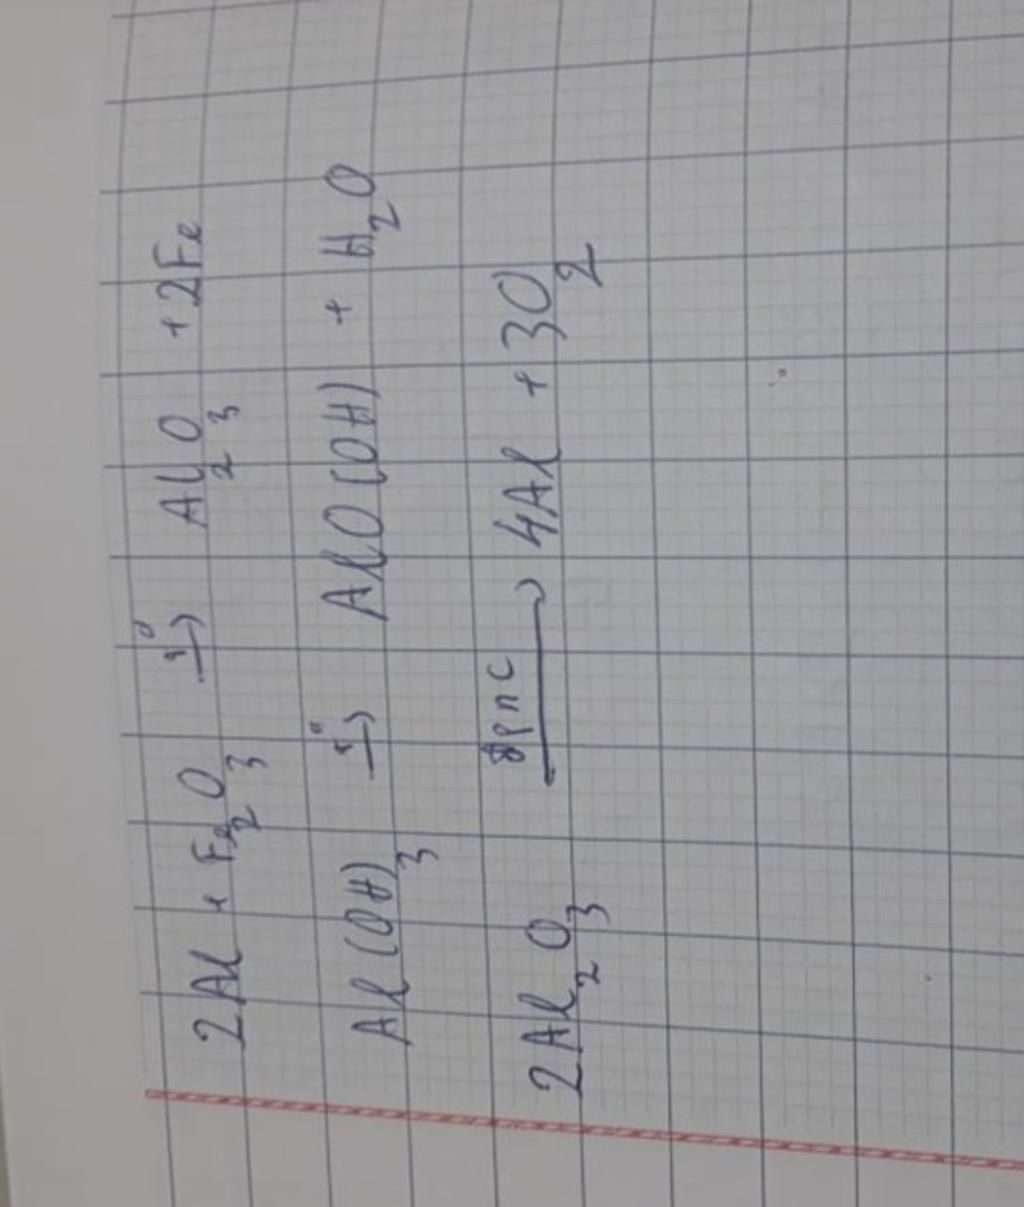 2Al + Fe₂O₃ t° → Al₂O₃ + 2Fe
Al(OH)₃ t° → AlO(OH) + H₂O
2Al₂O₃ đpnc → 4Al + 3O₂